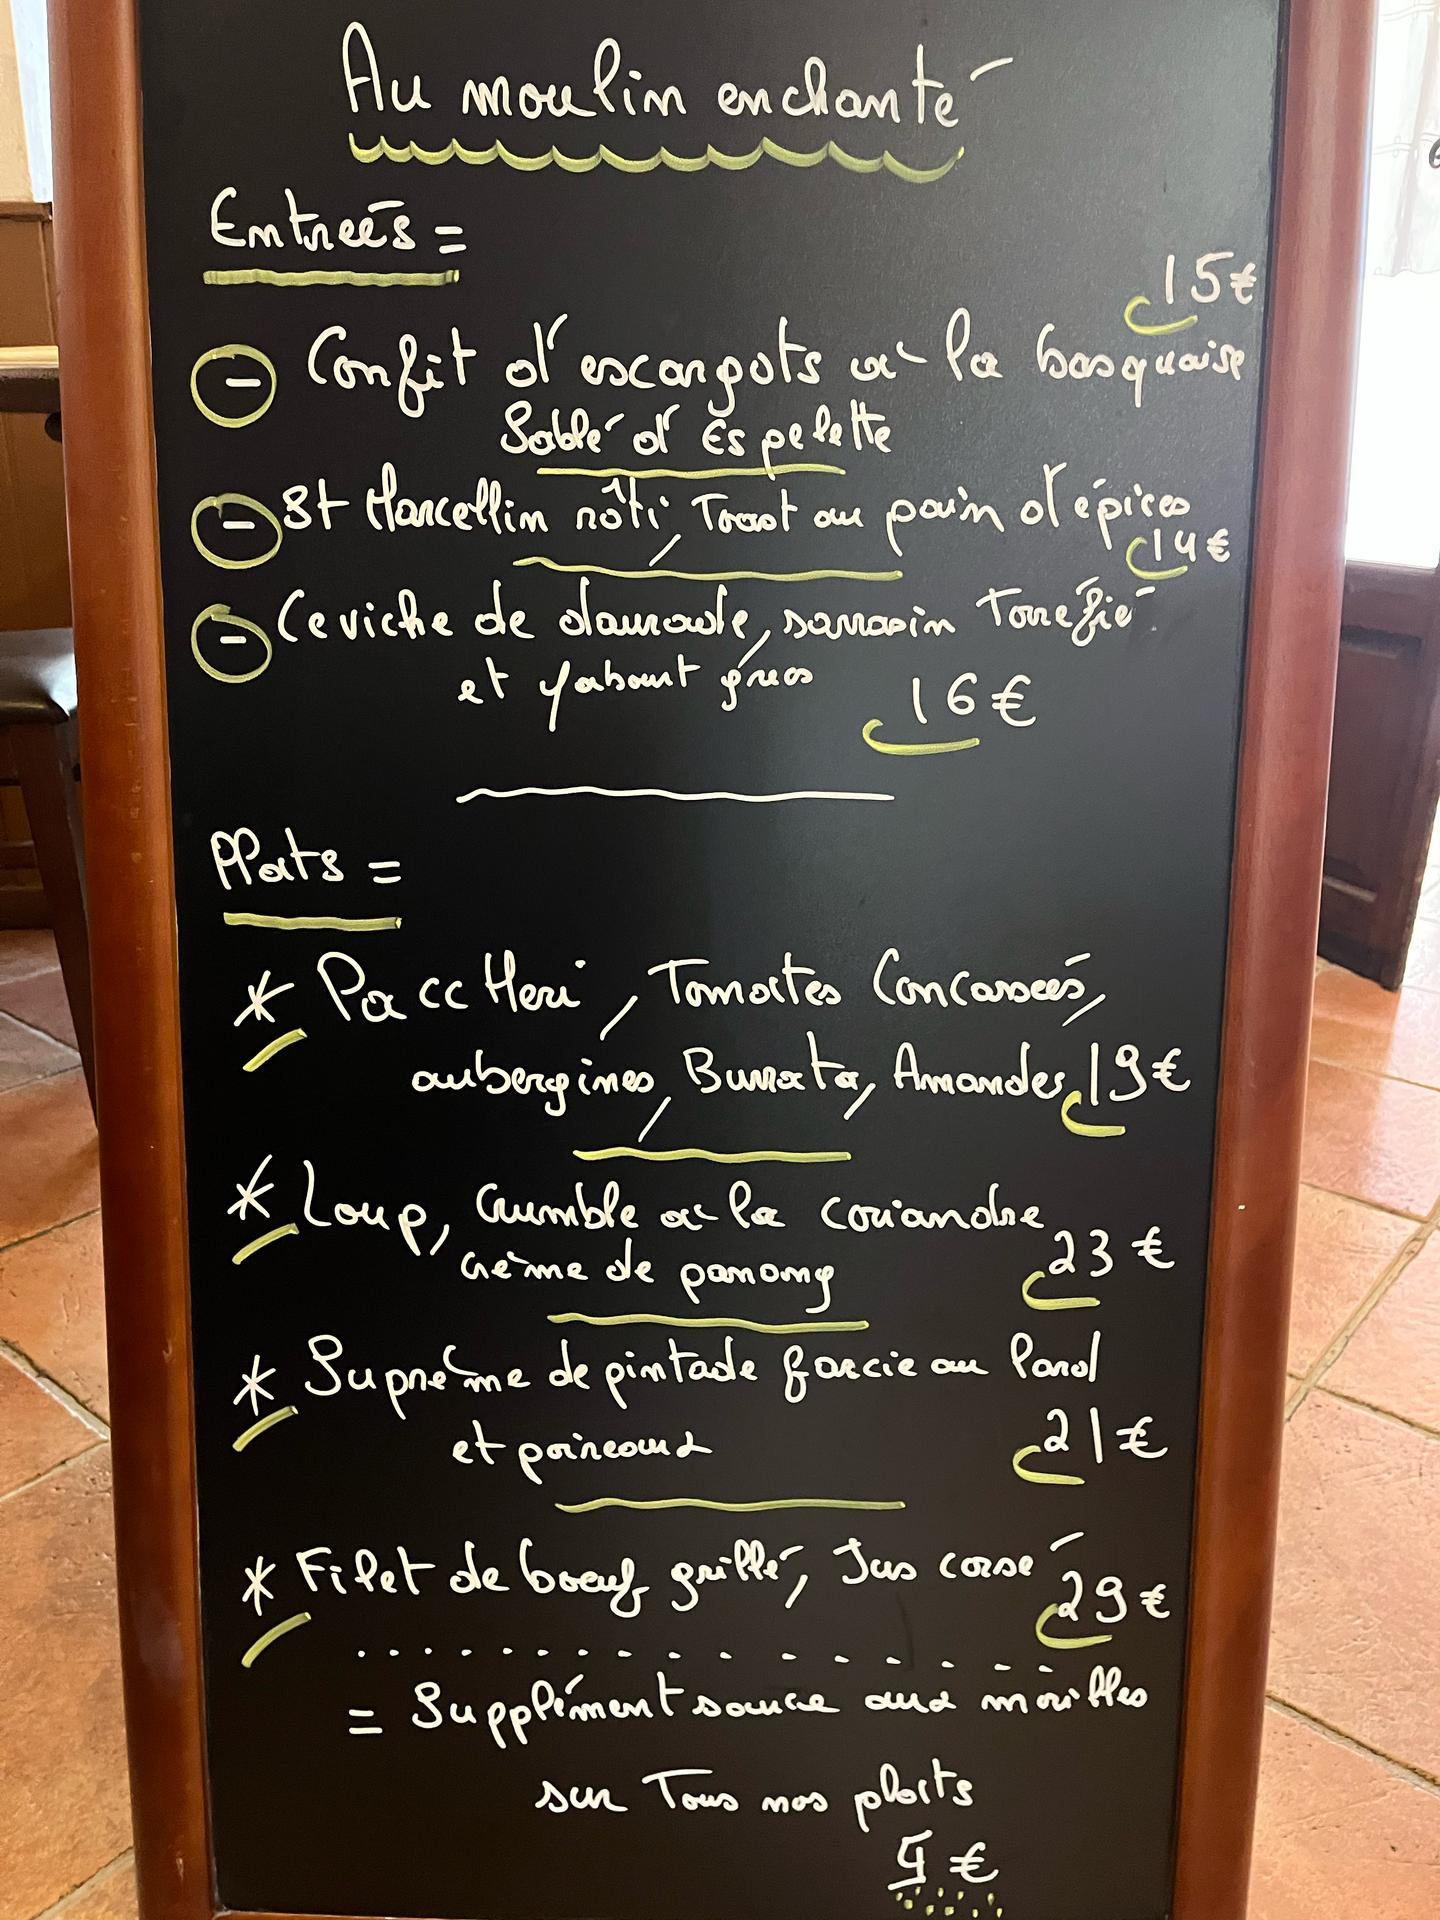 Au moulin enchanté
Entrées =
15€
- Confit d'escargots à la basquaise
Sablé d'Espelette
- St Marcellin rôti, Toast au pain d'épices
14€
- Ceviche de daurade, sarrasin Torréfié
et yahourt grec
16€
Plats =
* Paccheri, Tomates Concassées,
aubergines, Burrata, Amandes 19€
* Loup, Crumble à la coriandre
crème de panang
23€
* Suprême de pintade farcie au lard
et poireaux
21€
* Filet de bœuf grillé, Jus corsé
29€
= Supplément sauce aux morilles
sur Tous nos plats
€